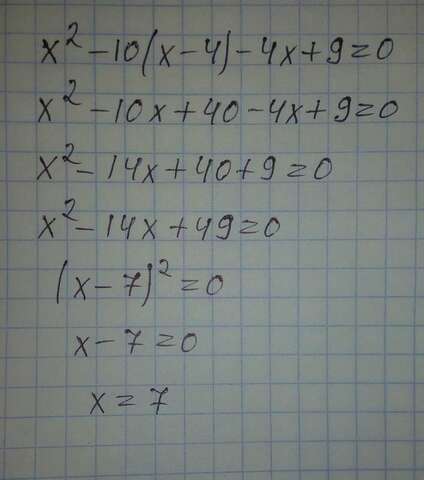 x² - 10(x - 4) - 4x + 9 = 0
x² - 10x + 40 - 4x + 9 = 0
x² - 14x + 40 + 9 = 0
x² - 14x + 49 = 0
(x - 7)² = 0
x - 7 = 0
x = 7